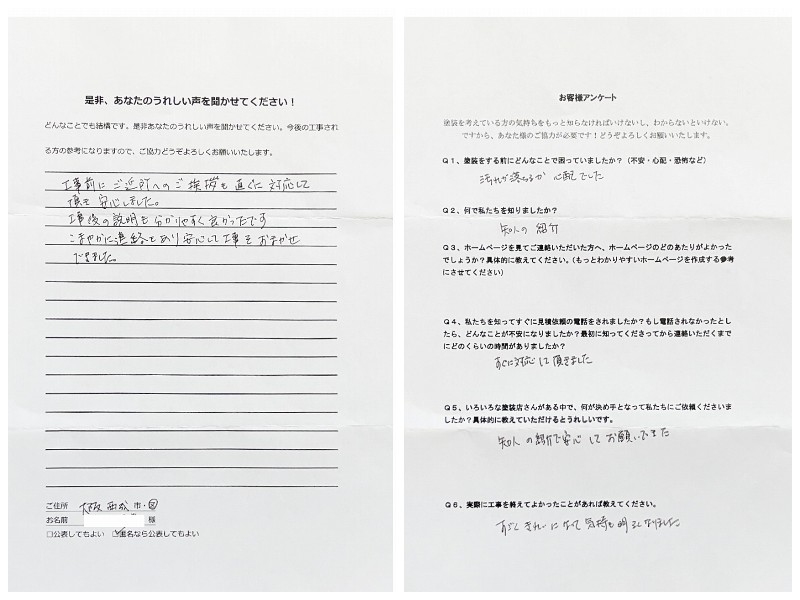 是非、あなたのうれしい声を聞かせてください！
どんなことでも結構です。是非あなたのうれしい声を聞かせてください。今後の工事され
る方の参考になりますので、ご協力どうぞよろしくお願いいたします。
工事前にご近所へのご挨拶も直ぐに対応して
頂き安心しました。
工事後の説明も分かりやすく良かったです
こまやかに連絡もあり安心して工事をおまかせ
できました。
ご住所 大阪 西 市・区
お名前 様
□公表してもよい ☑匿名なら公表してもよい
お客様アンケート
塗装を考えている方の気持ちをもっと知らなければいけないし、わからないといけない。
ですから、あなた様のご協力が必要です！どうぞよろしくお願いいたします。
Q1、塗装をする前にどんなことで困っていましたか？（不安・心配・恐怖など）
汚れが落ちるか 心配でした
Q2、何で私たちを知りましたか？
知人の 紹介
Q3、ホームページを見てご連絡いただいた方へ、ホームページのどのあたりがよかった
でしょうか？具体的に教えてください。（もっとわかりやすいホームページを作成する参考
にさせてください）
Q4、私たちを知ってすぐに見積依頼の電話をされましたか？もし電話されなかったとし
たら、どんなことが不安になりましたか？最初に知ってくださってから連絡いただくまで
にどのくらいの時間がありましたか？
すぐに対応して頂きました
Q5、いろいろな塗装店さんがある中で、何が決め手となって私たちにご依頼くださいま
したか？具体的に教えていただけるとうれしいです。
知人の紹介で安心してお願いできた
Q6、実際に工事を終えてよかったことがあれば教えてください。
きれいになって気持も明るくなりました